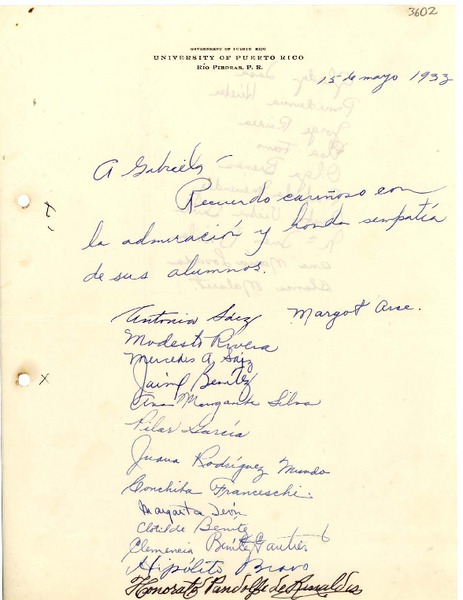 3602
GOVERNMENT OF PUERTO RICO
UNIVERSITY OF PUERTO RICO
RÍO PIEDRAS, P. R.
15 de mayo 1933
A Gabriela,
Recuerdo cariñoso con
la admiración y honda simpatía
de sus alumnos.
Antonia Sáez Margot Arce.
Modesto Rivera
Mercedes A. Sáez
Jaime Benítez
Ana Margarita Silva
Pilar García
Juana Rodríguez Mundo
Conchita Franceschi.
Margarita León
Clotilde Benítez
Clemencia Benítez Gautier
Hipólito Bravo
Honorato Pandolfi de Rinaldis